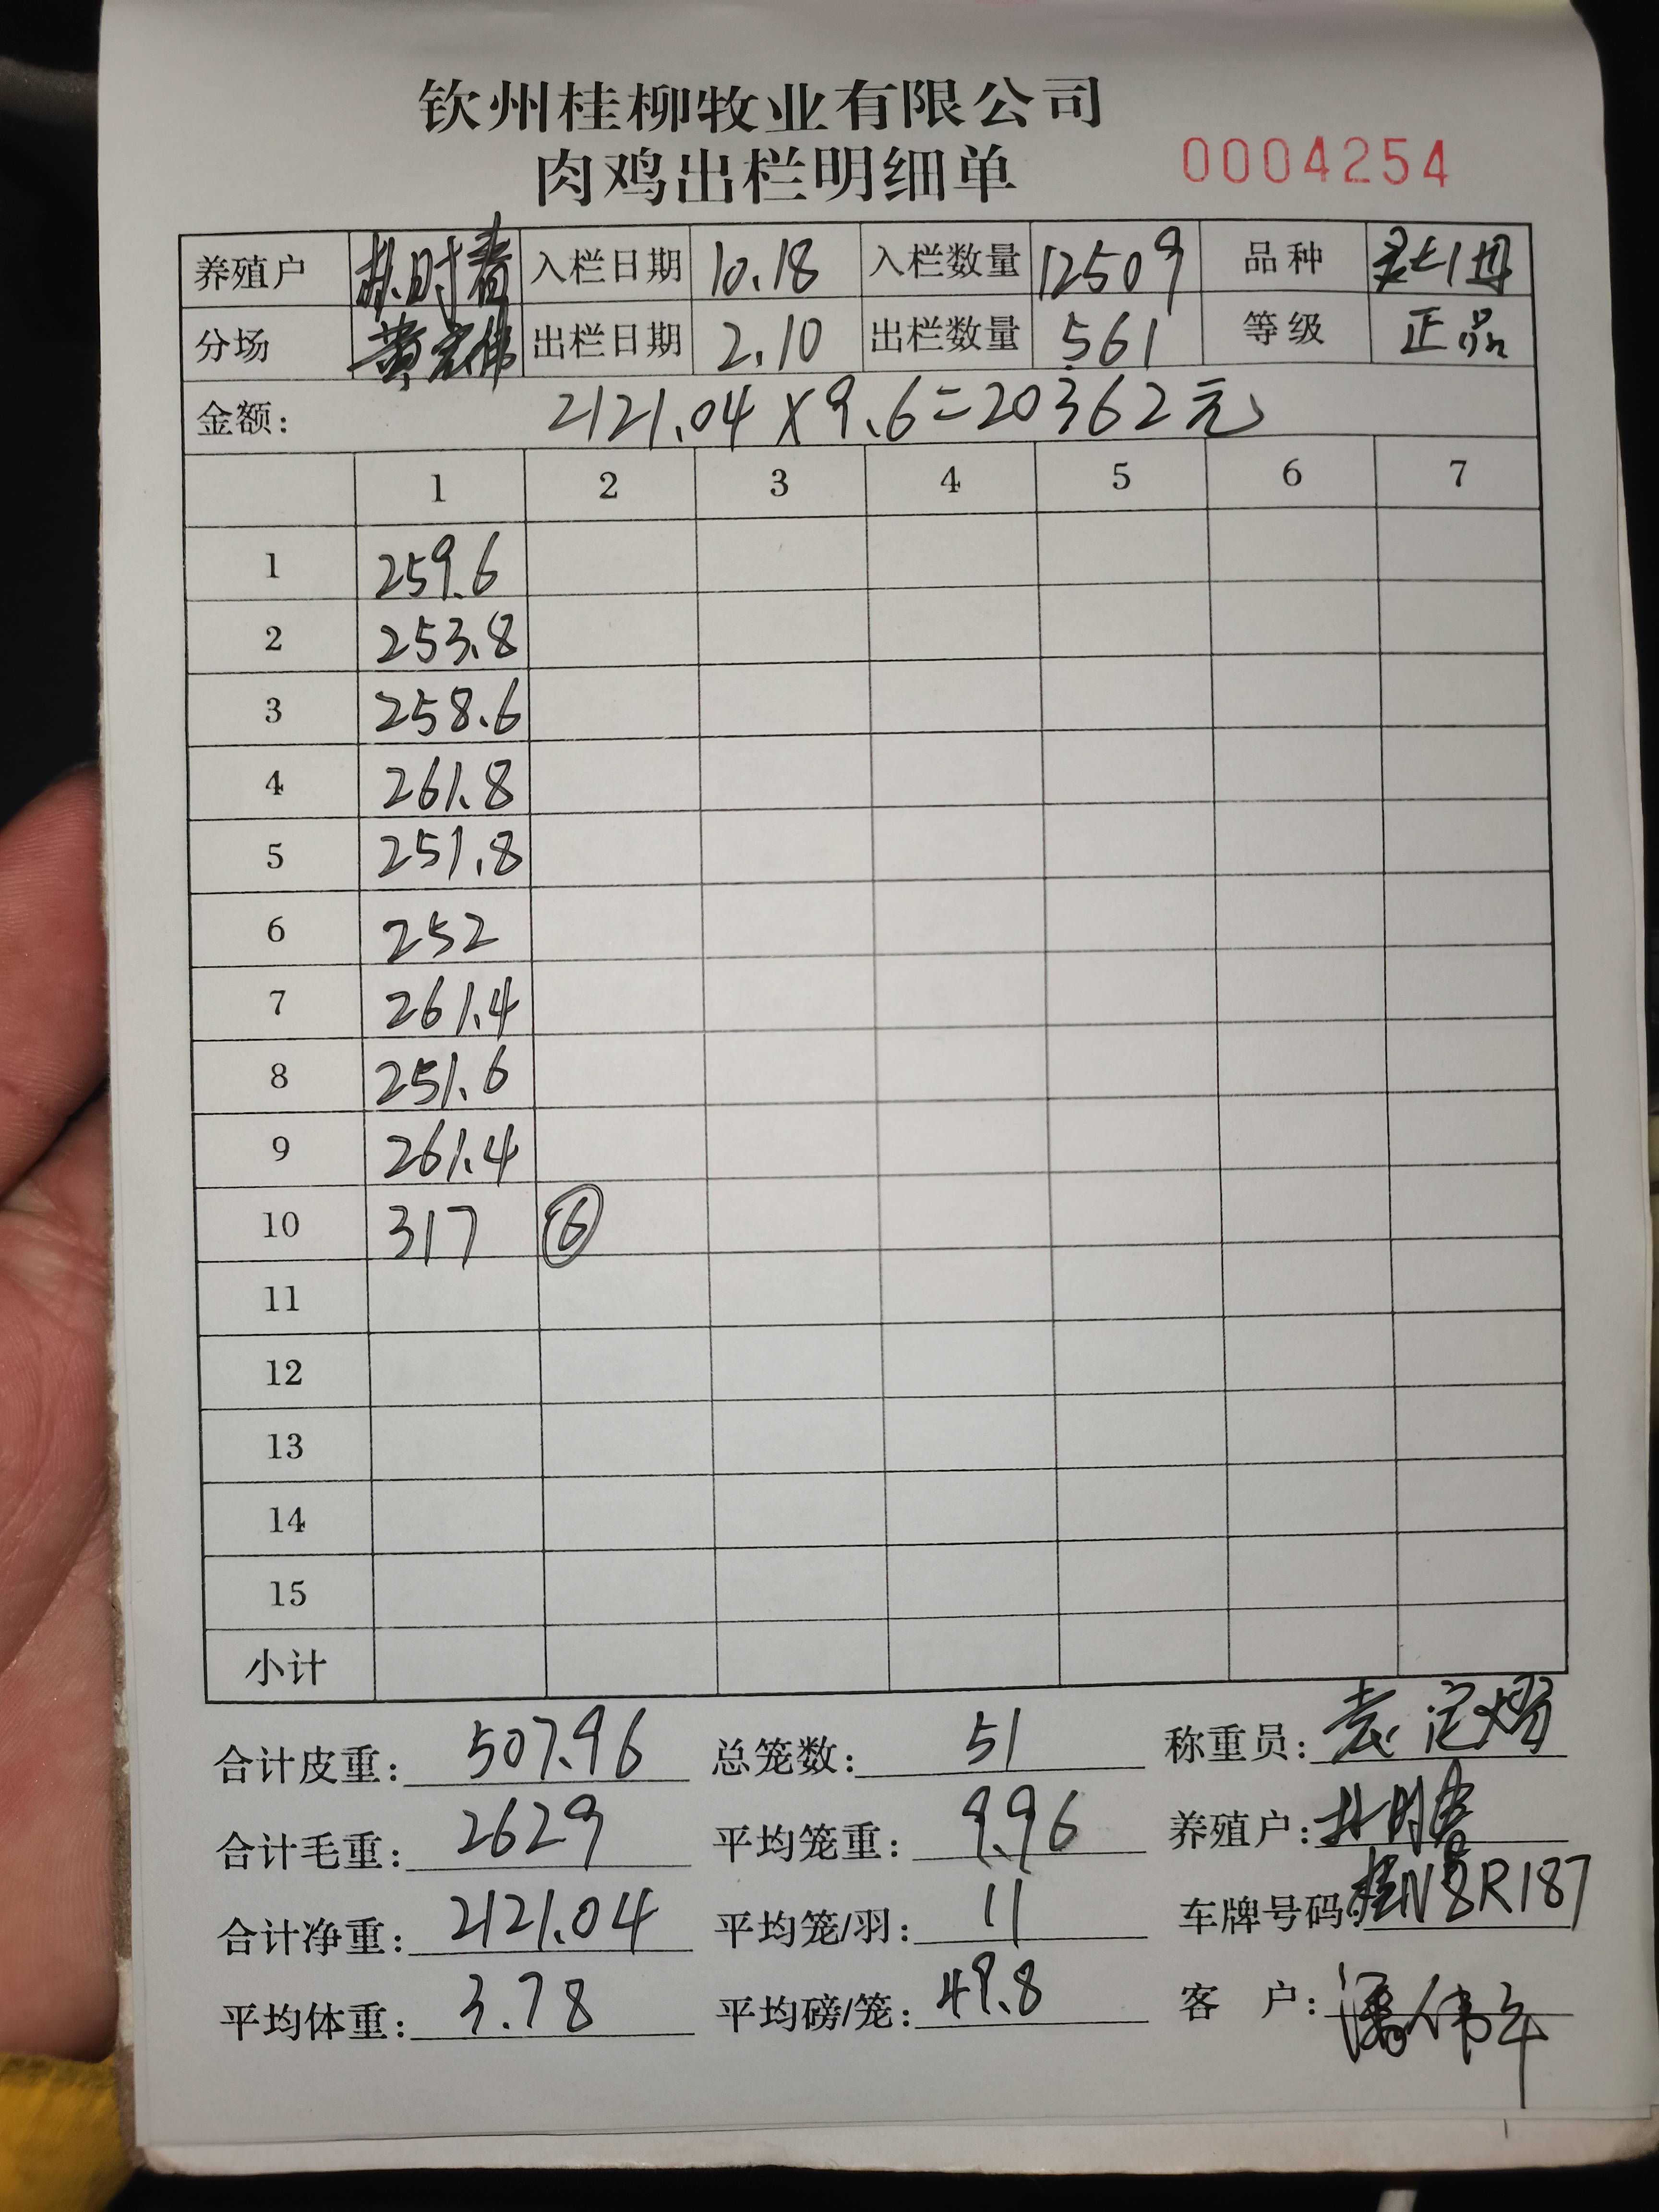 钦州桂柳牧业有限公司
肉鸡出栏明细单
0004254
养殖户 林时春 入栏日期 10.18 入栏数量 12509 品种
分场 黄宏伟 出栏日期 2.10 出栏数量 561 等级 正品
金额: 2121.04×9.6=20362元
1 2 3 4 5 6 7
1 259.6
2 253.8
3 258.6
4 261.8
5 251.8
6 252
7 261.4
8 251.6
9 261.4
10 317 ⑥
11
12
13
14
15
小计
合计皮重: 507.96 总笼数: 51 称重员:
合计毛重: 2629 平均笼重: 9.96 养殖户:
合计净重: 2121.04 平均笼/羽: 11 车牌号码: 桂N8R187
平均体重: 3.78 平均磅/笼: 49.8 客 户: